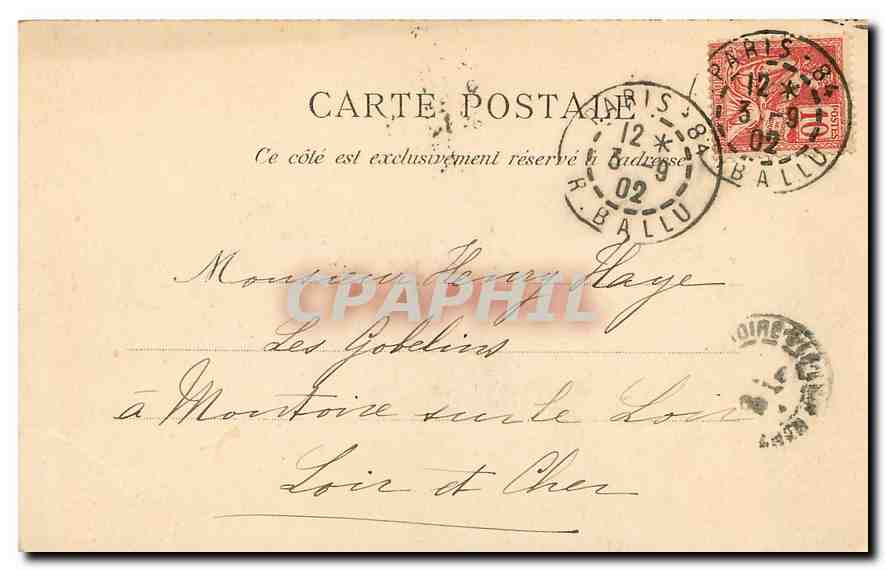 CARTE POSTALE
Ce côté est exclusivement réservé à l'adresse
PARIS - 84
12 *
3 - 9
02
R. BALLU
PARIS - 84
12 *
3 - 9
02
BALLU
10
POSTES
Monsieur Henry Haye
CPAPHIL
Les Gobelins
à Montoire sur le Loir
Loir et Cher